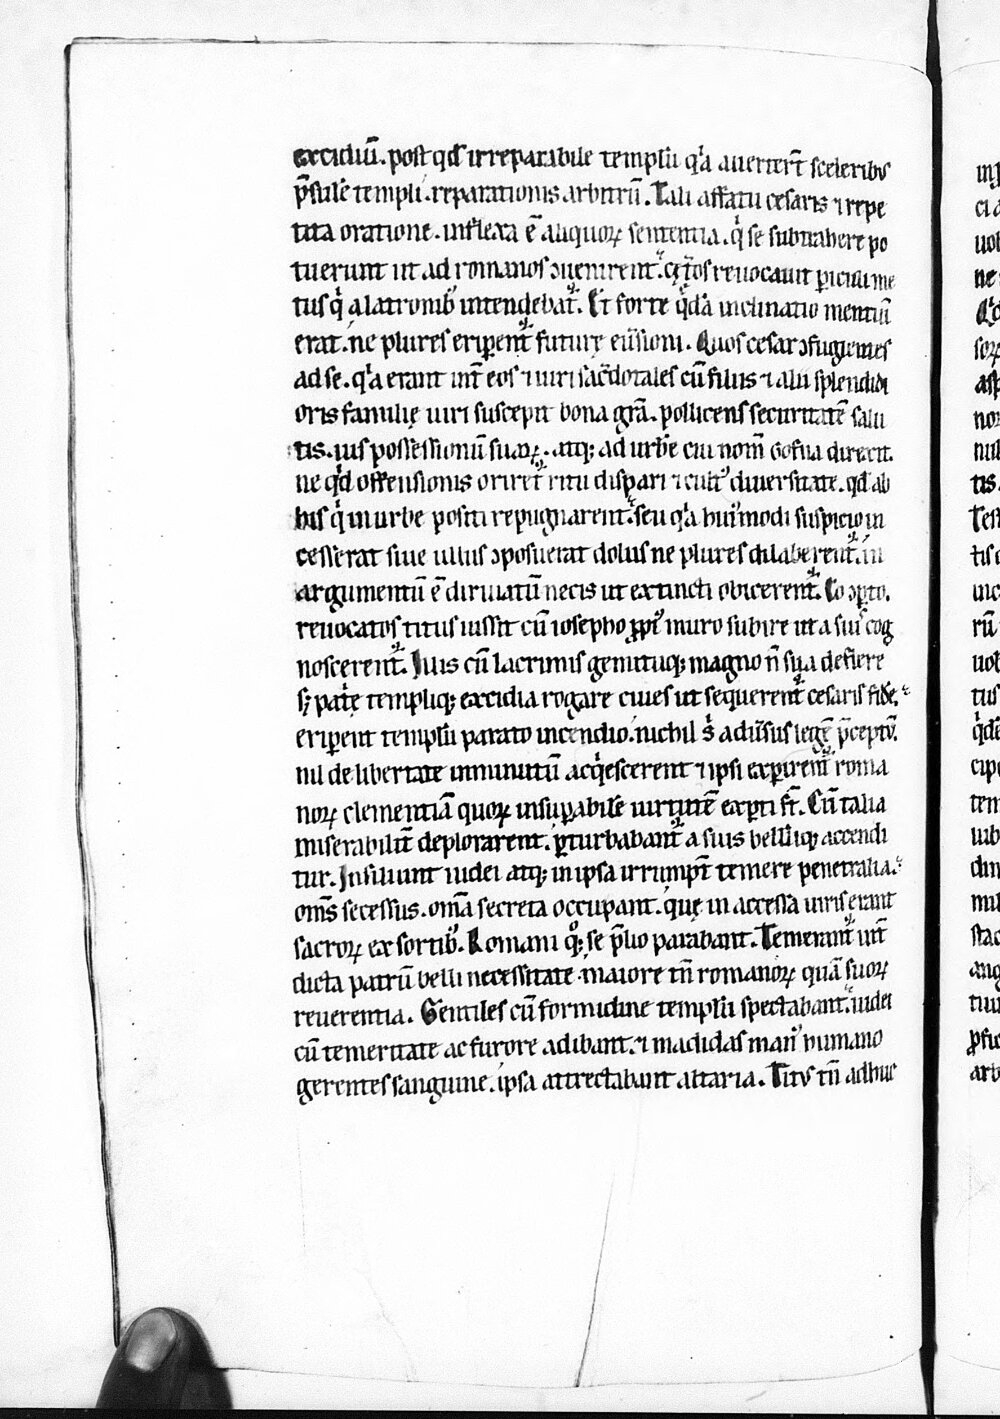 excidiū. post qd' irreparabile templū qꝛa auerterēt sceleribꝰ
p̄sule templi. reparationis arbitrū. Tali affatu cesaris ⁊ repe
tita oratione. inflexa ē aliquoꝝ sententia. qͥ se subtrahere po
tuerunt ut ad romanos ꝯuenirent̛. reuocauit ꝑiculi me
tus qͥ a latronibꝰ intendebat̛. Et forte q̇dā inclinatio mentiū
erat. ne plures eriperent̛ future euersioni. Quos cesar ꝯfugientes
ad se. qͥa erant int̄ eos ⁊ uiri sac̄dotales cū filiis ⁊ alii splendidi
oris familię uiri suscepit bona gr̄a. pollicens securitatē salu
tis. ius possessionū suaꝝ. atq; ad urbē cui nom̄ Gofna direxit.
ne qͥd offensionis oriret̛ ritu dispari ⁊ cultꝰ diuersitate. qd' ab
his qͥ in urbe positi repugnarent̛. seu qͥa huiꝰmodi suspicio in
cesserat siue illius ꝯposuerat dolus ne plures dilaberent̛. in
argumentū ē diriuatū necis ut extincti obicerent̛. Eo ꝯꝑto.
reuocatos titus iussit cū iosepho ꝓpiꝰ muro subire ut a suis cog
noscerent̛. Illis cū lacrimis gemituq; magno n̄ sua deflere
sꝫ pat̄e templiq; excidia rogare ciues ut sequerent̛ cesaris fidē.
eriperent templū parato incendio. nichil s̄ aduersus legē p̄ceptū.
nil de libertate inminutū acqͥescerent ⁊ ipsi exꝑirent̛ roma
noꝝ clementiā quoꝝ insuꝑabilē uirtutē exꝑti st̄. Cū talia
miserabilit̄ deplorarent. ꝑturbabant̛ a suis belliq; accendi
tur. Insiliunt iudei atq; in ipsa irrumpt̄ temere penetralia.
om̄s secessus. om̄a secreta occupant. quę inaccessa uiris erant
sacroꝝ exsortibꝰ. Romani qͦq; se p̄lio parabant. Temerant̛ int̄
dicta patrū belli necessitate maiore tn̄ romanoꝝ quā suoꝝ
reuerentia. Gentiles cū formidine templū spectabant. iudei
cū temeritate ac furore adibant. ⁊ madidas manꝰ humano
gerentes sanguine. ipsa attrectabant altaria. Titꝰ tn̄ adhuc